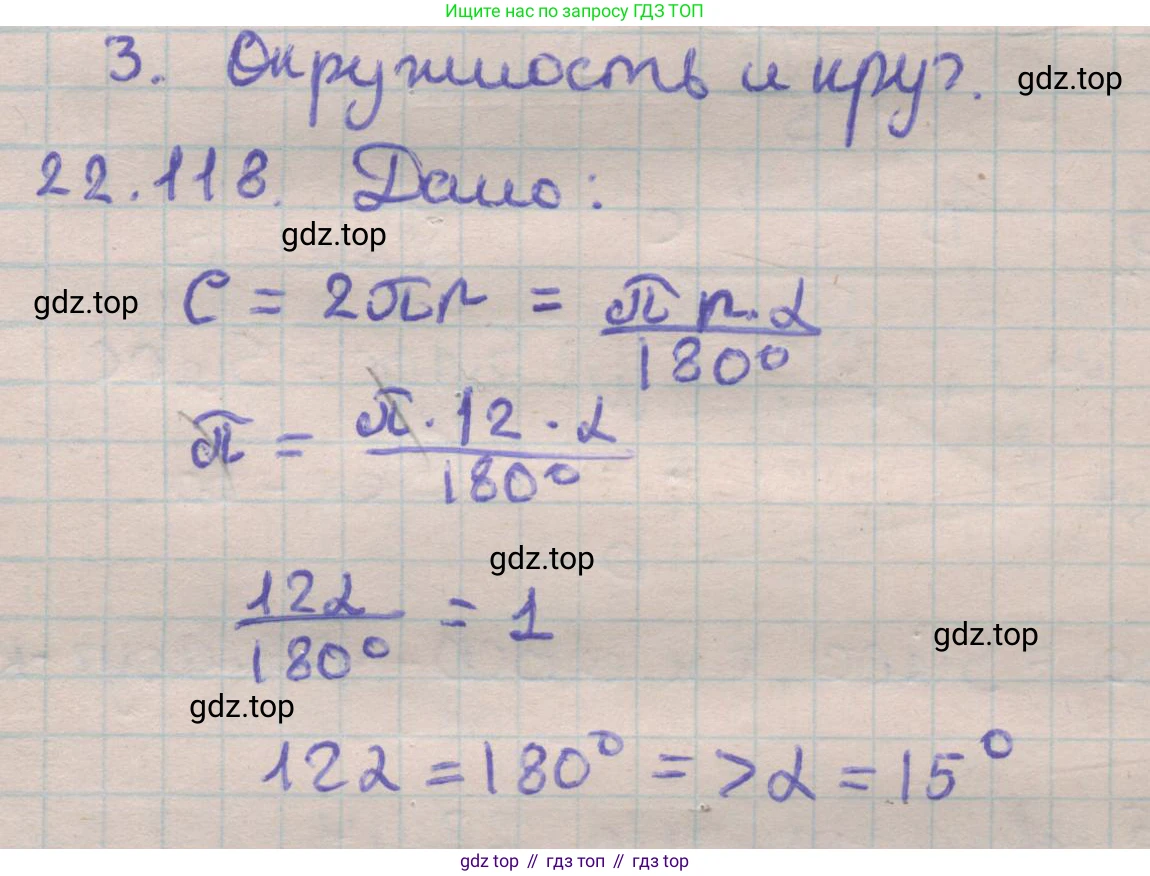 Ищите нас по запросу ГДЗ ТОП
3. Окружность и круг.
gdz.top
22.118. Дано:
gdz.top
gdz.top
C = 2πr = πr·α/180°
π = π·12·α/180°
gdz.top
12α/180° = 1
gdz.top
gdz.top
12α = 180° => α = 15°
gdz.top // гдз топ // гдз top